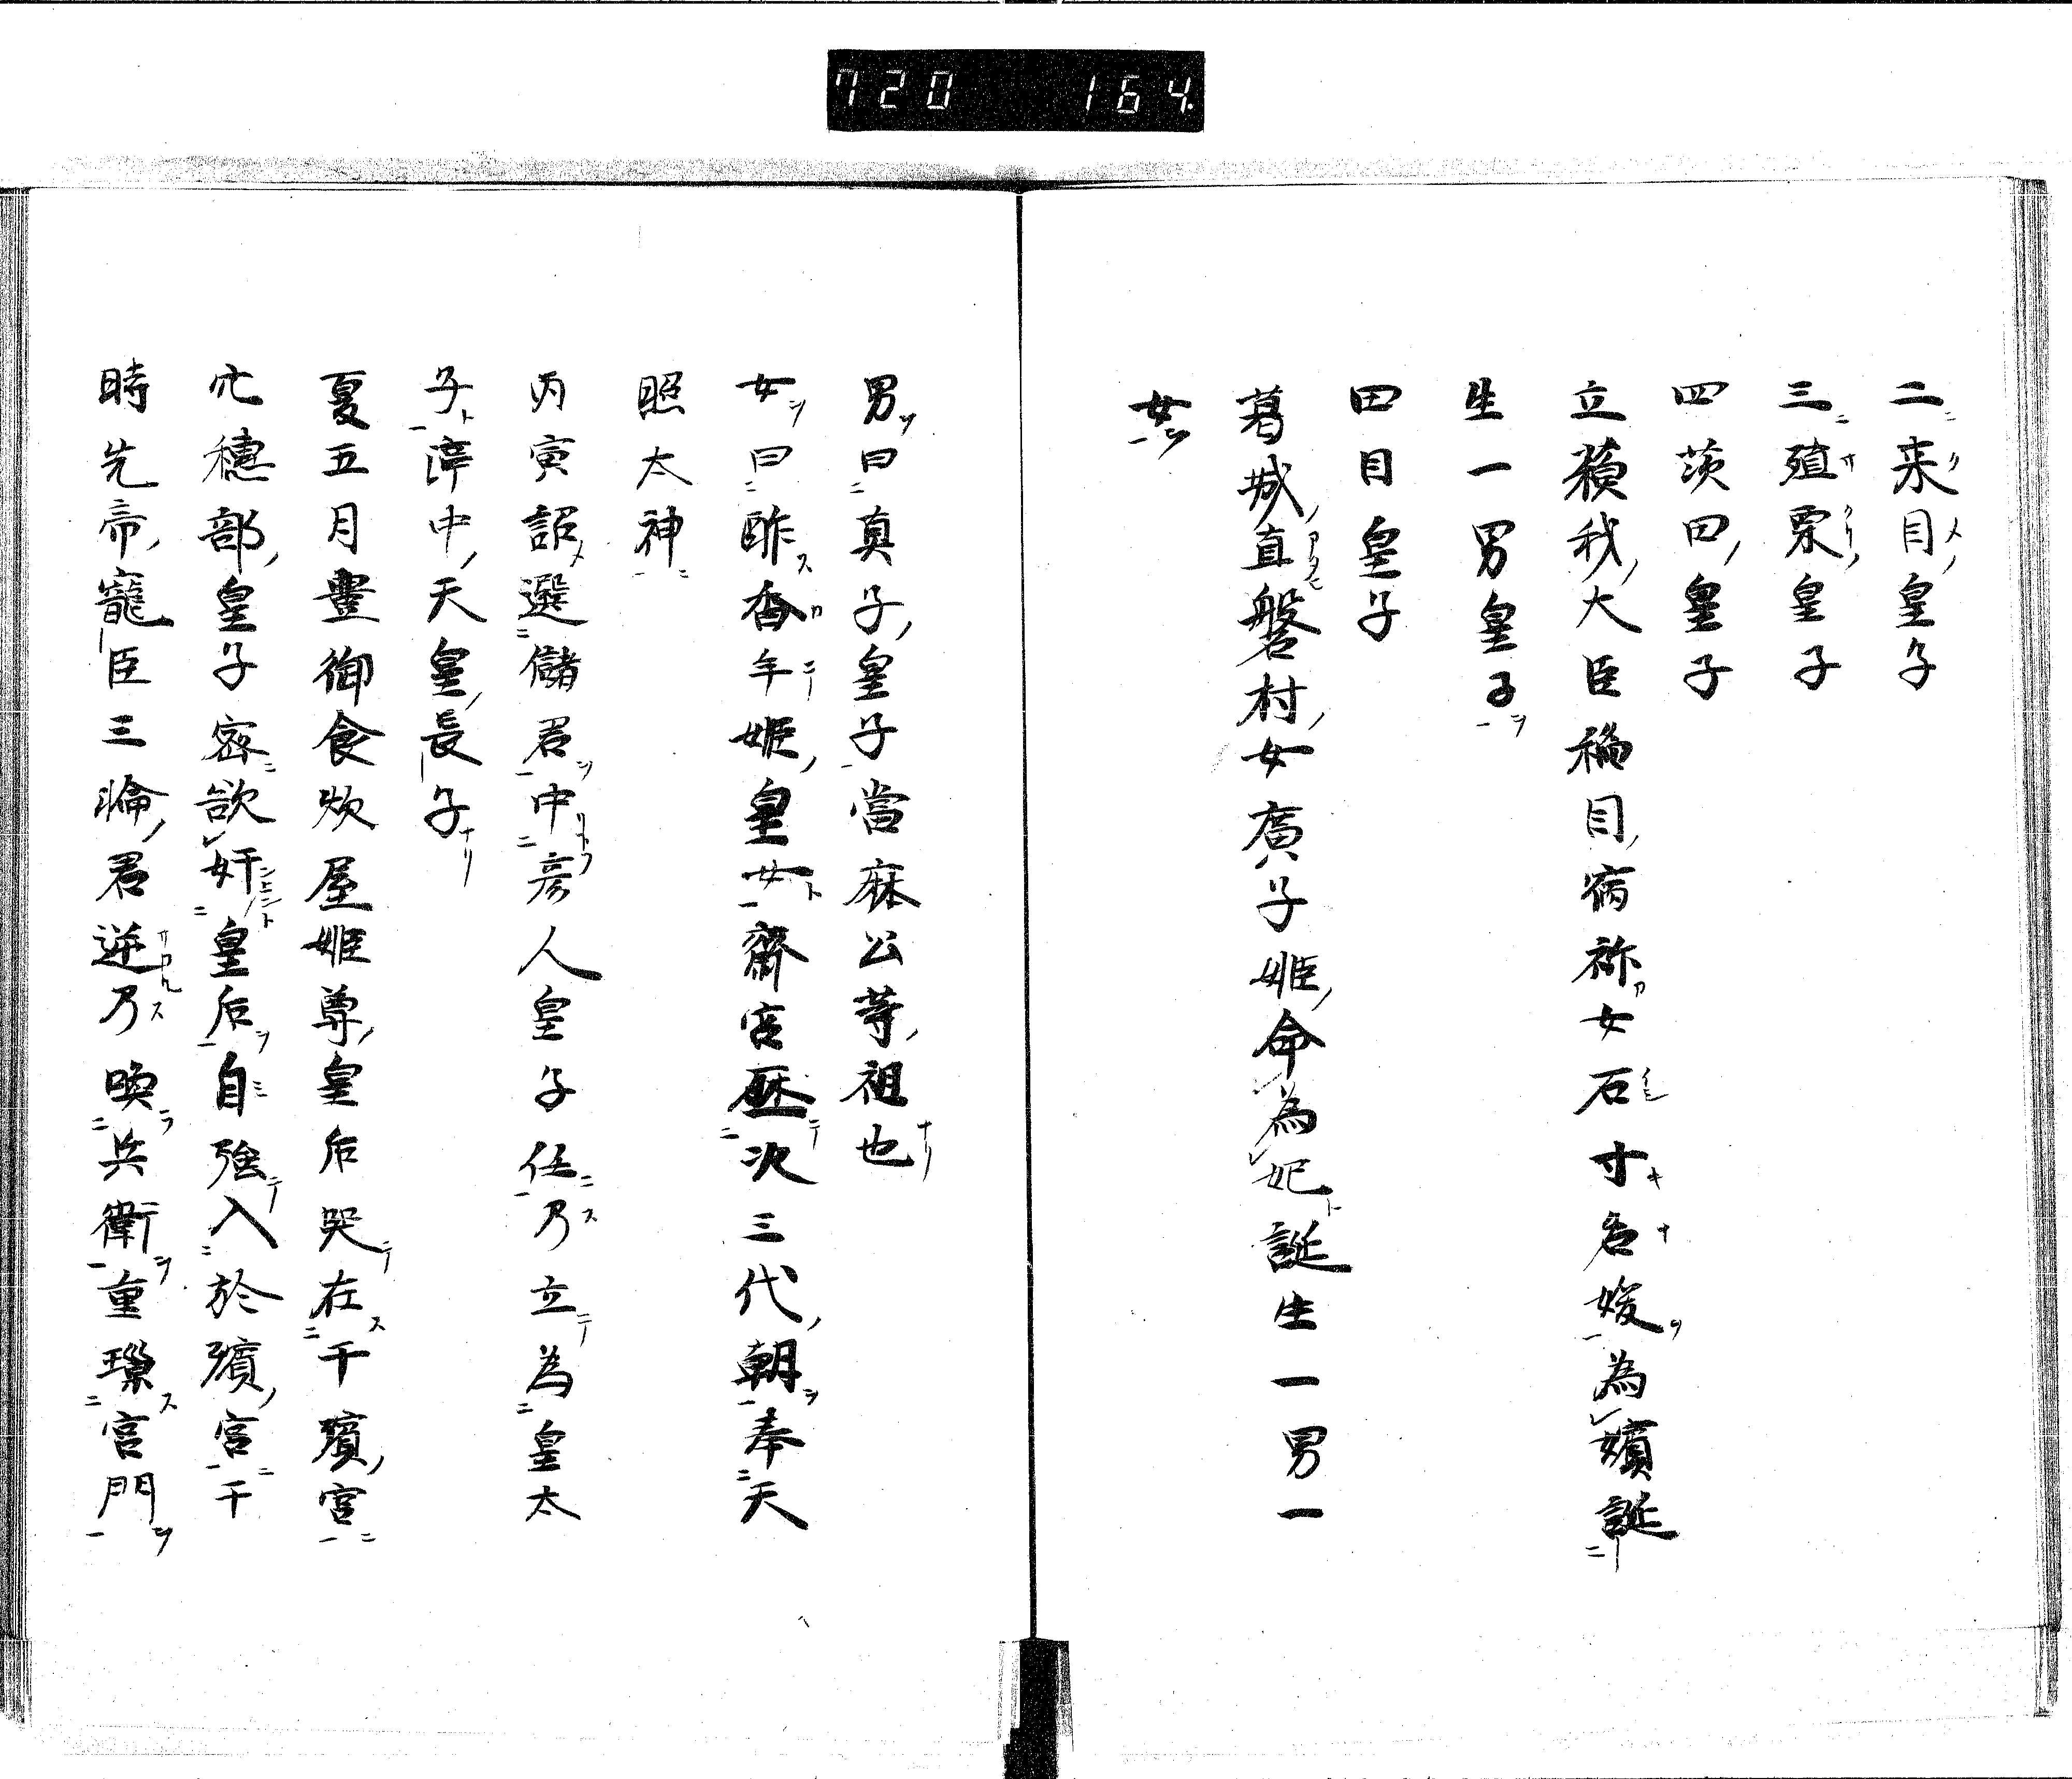 720 164
二来目皇子
三殖栗皇子
四茨田皇子
立蘓我大臣稲目宿祢女石寸名媛為嬪誕
生一男皇子
田目皇子
葛城直磐村女廣子姫命為妃誕生一男一
女
男曰真子皇子當麻公等祖也
女曰酢香手姫皇女齋宮歴次三代朝奉天
照太神
丙寅詔選儲君中彦人皇子任乃立為皇太
子渟中天皇長子
夏五月豊御食炊屋姫尊皇后哭在于殯宮
穴穂部皇子密欲奸皇后自強入於殯宮于
時先帝寵臣三輪君逆乃喚兵衛重璅宮門